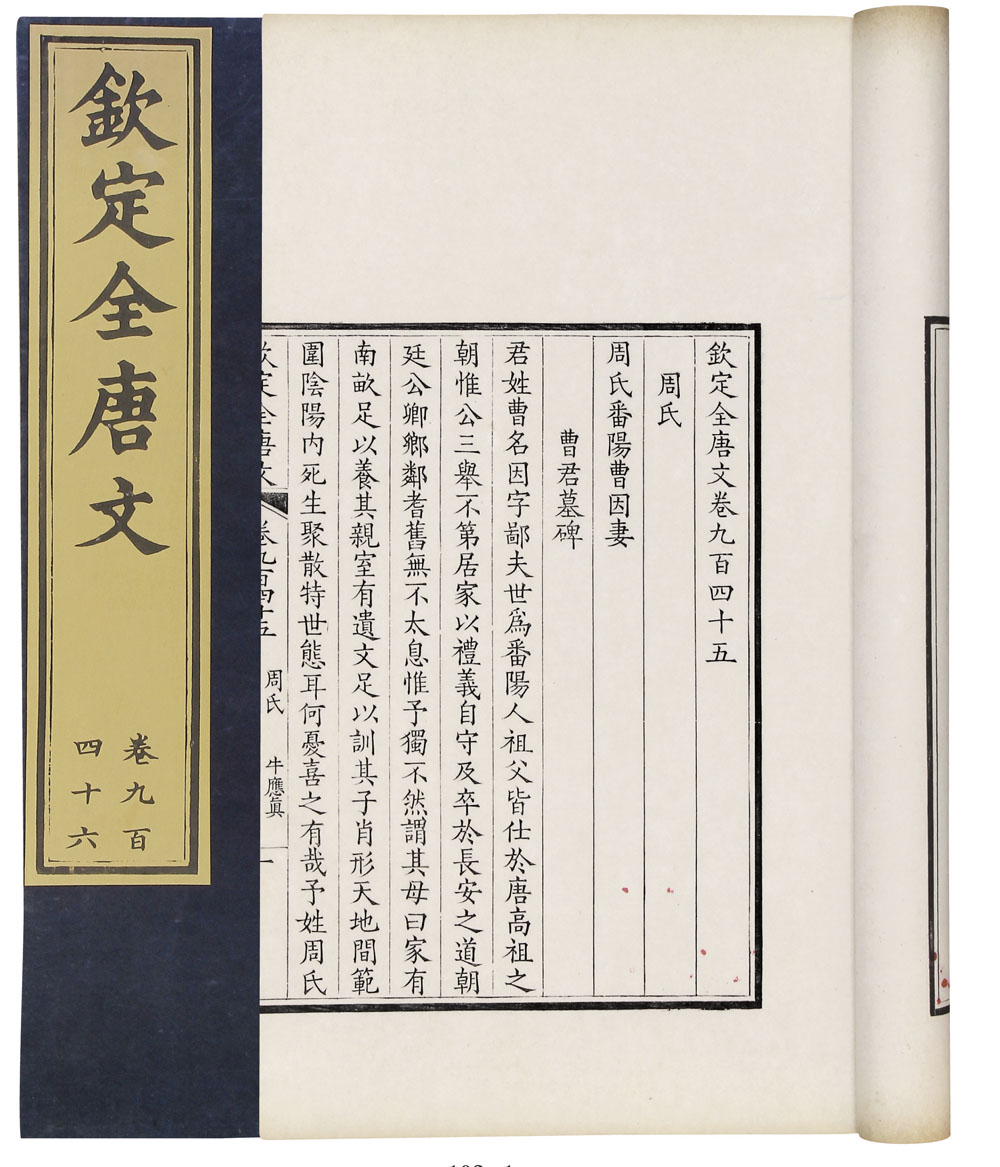 欽定全唐文
卷九百
四十六
欽定全唐文卷九百四十五
周氏
周氏番陽曹因妻
曹君墓碑
君姓曹名因字鄙夫世爲番陽人祖父皆仕於唐高祖之
朝惟公三舉不第居家以禮義自守及卒於長安之道朝
廷公卿鄉鄰耆舊無不太息惟予獨不然謂其母曰家有
南畝足以養其親室有遺文足以訓其子肖形天地間範
圍陰陽内死生聚散特世態耳何憂喜之有哉予姓周氏
欽定全唐文 卷九百四十五 周氏 牛應眞 一